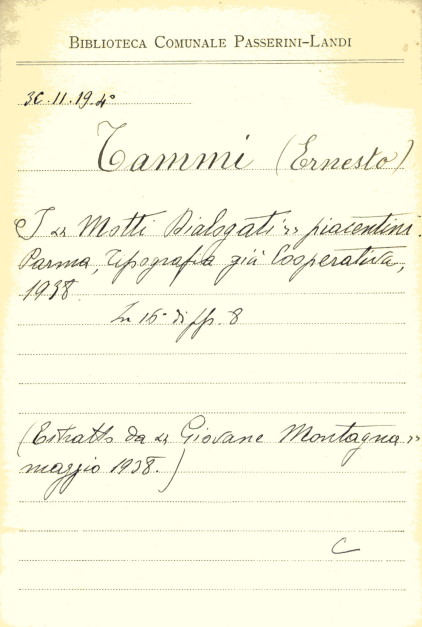 BIBLIOTECA COMUNALE PASSERINI-LANDI
30.11.19.4°
Tammi (Ernesto)
I « Motti Dialogati » piacentini.
Parma, Tipografia già Cooperativa,
1938
In 16° di pp. 8
(Estratto da « Giovane Montagna »
maggio 1938.)
C